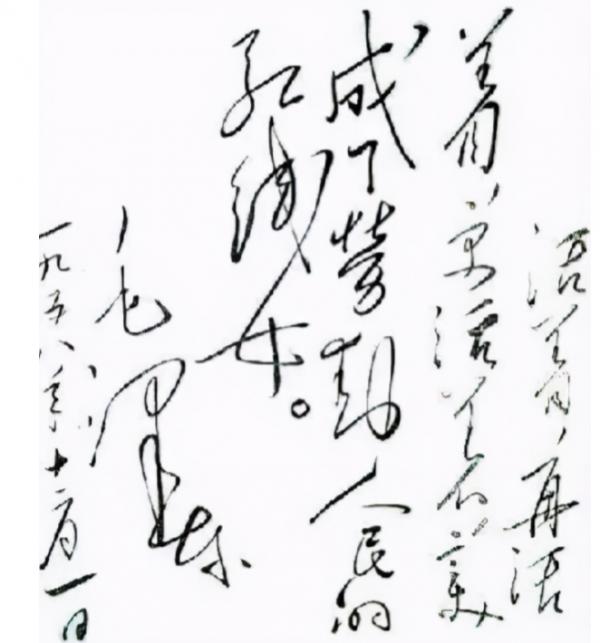 活着,再活
着,更活着,變
成了勞動人民的
红线女。
毛泽东
一九五八年十二月一日